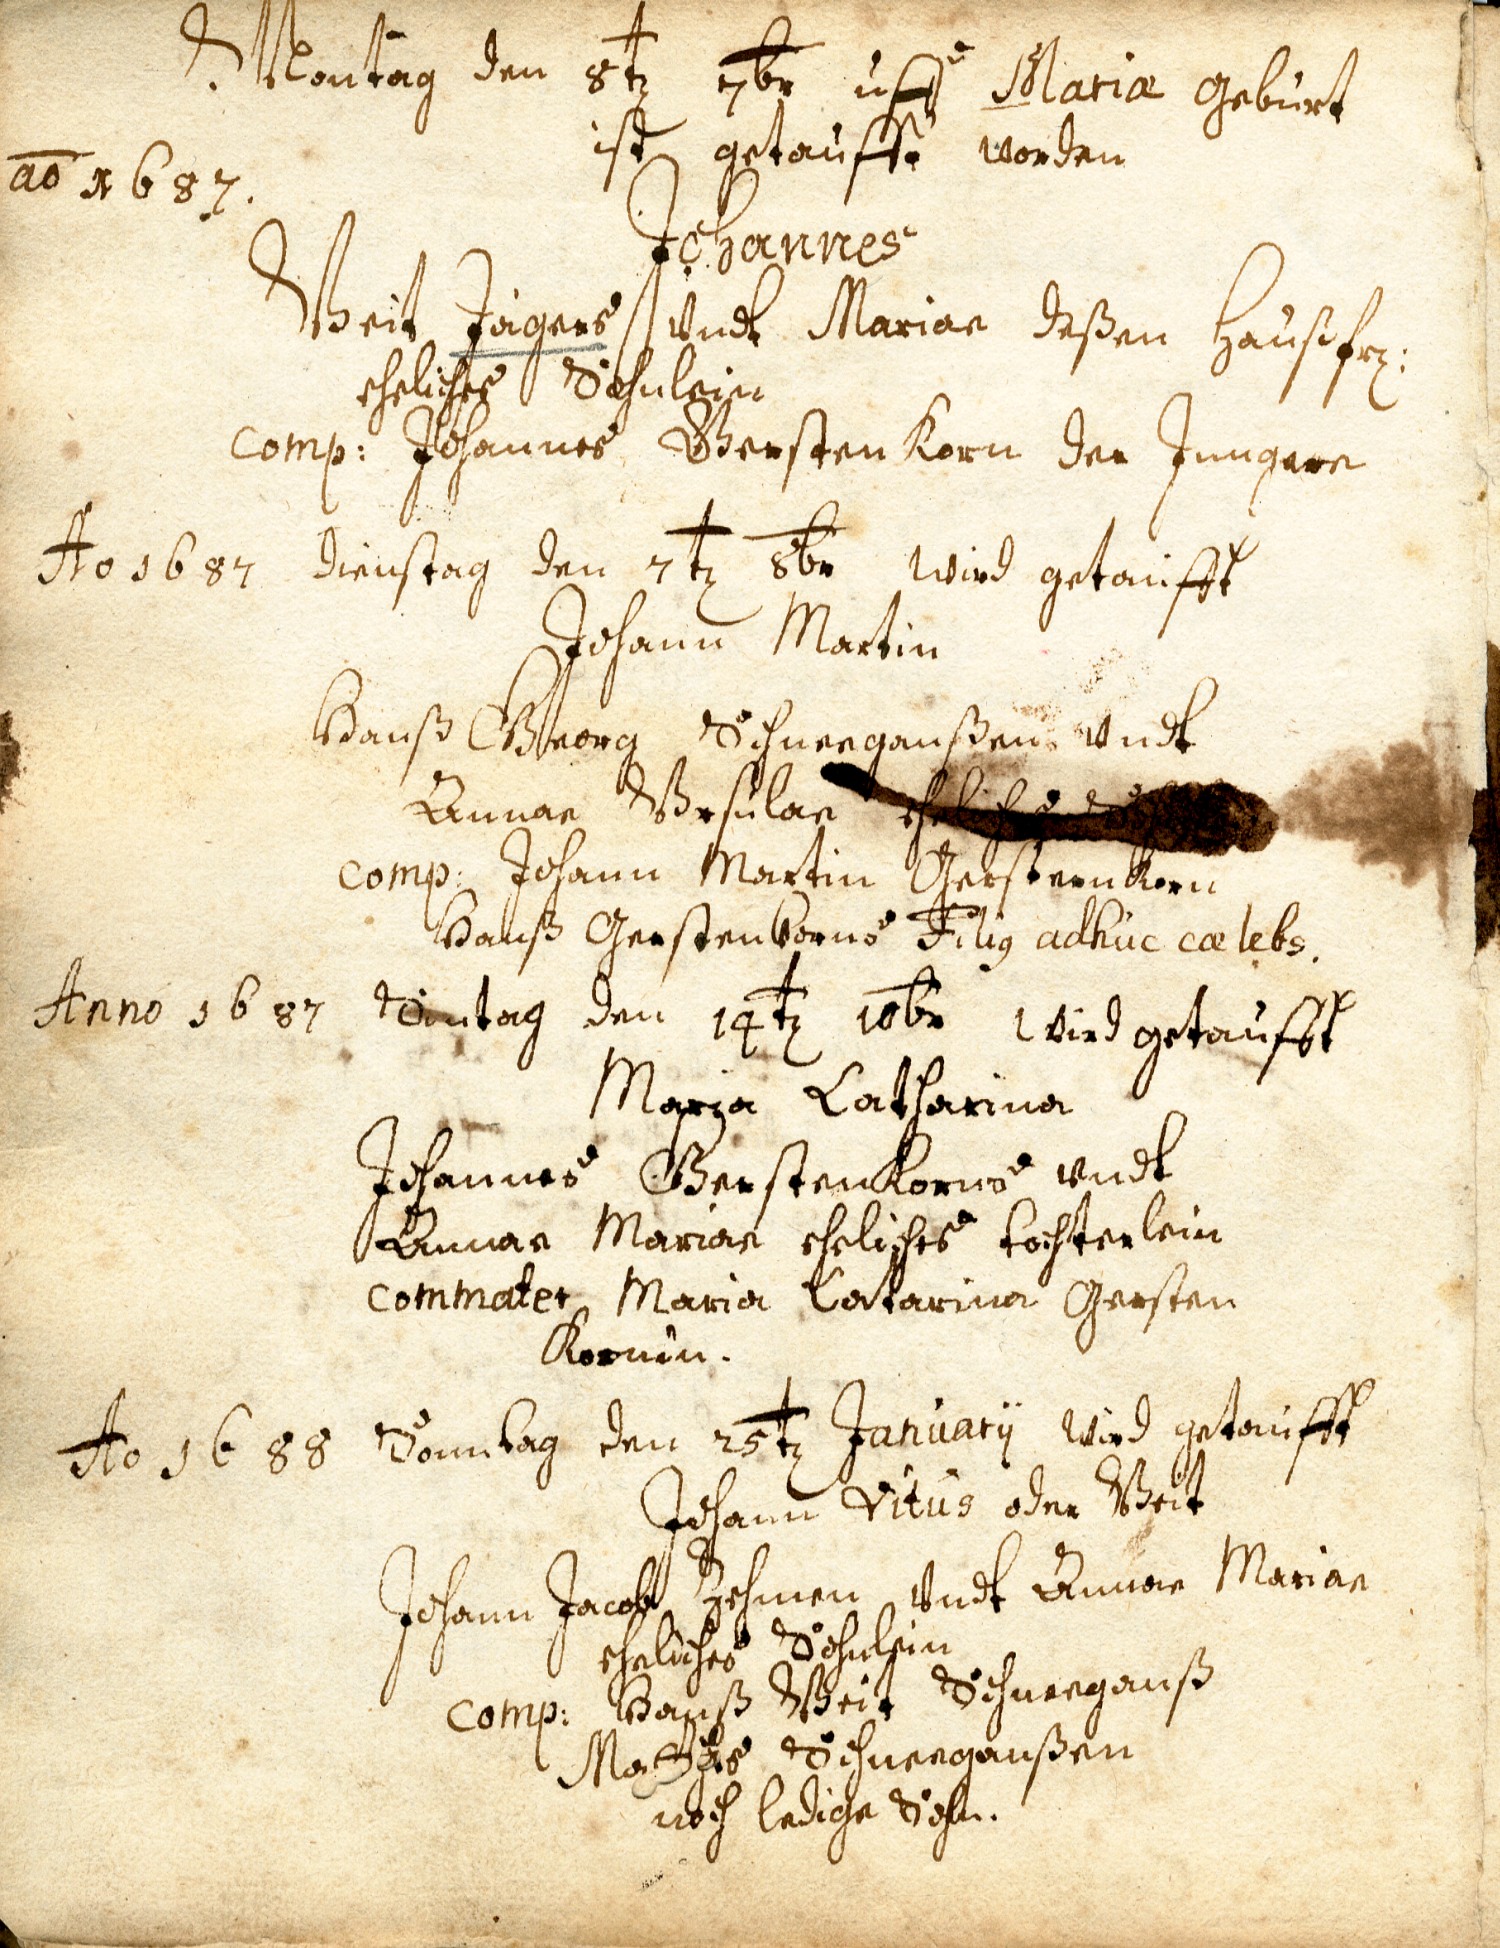 Montag den 8t 7br uff Mariæ Geburt
ist getaufft worden
ao 1687.
Johannes
Veit Jägers undt Mariae deßen Haußfr:
eheliches Söhnlein
Comp: Johannes Gersten Korn der Jungere
Ao 1687 dienstag den 7t 8br wird getaufft
Johann Martin
Hanß Georg Schneeganßen undt
Annae Ursulae eheliches
Comp: Johann Martin Gerstenkorn
Hanß Gerstenkorns Filig adhuc cælebs.
Anno 1687 Sontag den 14t 10br wird getaufft
Maria Catharina
Johannes Gerstenkorns undt
Annae Mariae eheliches tochterlein
Commater Maria Catarina Gersten
Kornin.
Ao 1688 Sonntag den 25t Januarij wird getaufft
Johann Vitus oder Veit
Johann Jacob Hehmen undt Annae Mariae
eheliches Söhnlein
Comp: Hanß Veit Schneeganß
Mathes Schneeganßen
noch ledige Sohn.